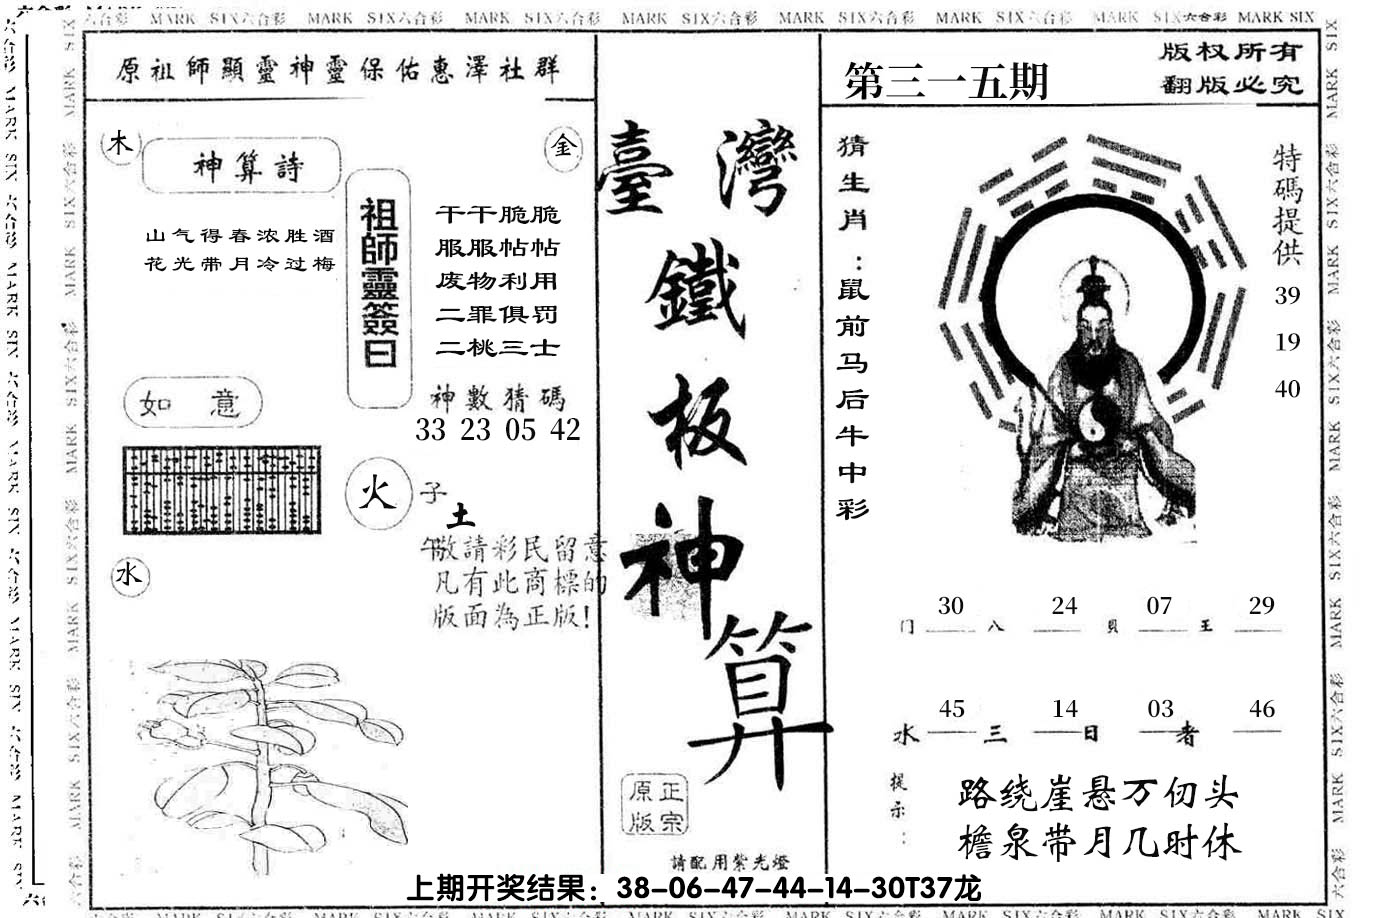 六合彩 MARK SIX六合彩 MARK SIX六合彩 MARK SIX六合彩 MARK SIX六合彩 MARK SIX六合彩 MARK SIX六合彩 MARK SIX六合彩 MARK SIX
原祖師顯靈神靈保佑惠澤社群
木
金
神算詩
山气得春浓胜酒
花光带月冷过梅
祖師靈簽曰
干干脆脆
服服帖帖
废物利用
二罪俱罚
二桃三士
神數猜碼
33 23 05 42
如 意
火
子
土
午
敬請彩民留意
凡有此商標的
版面為正版!
水
臺灣
鐵
板
神
算
正宗
原版
請配用紫光燈
第三一五期
版权所有
翻版必究
猜生肖:鼠前马后牛中彩
特碼提供
39
19
40
30 24 07 29
门 八 贝 王
45 14 03 46
水 三 日 者
提示:
路绕崖悬万仞头
檐泉带月几时休
上期开奖结果：38-06-47-44-14-30T37龙